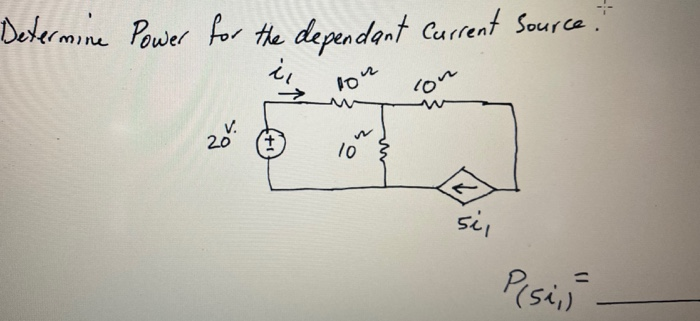 Determine Power for the dependant Current Source.
i₁ 10Ω 10Ω
20V. + - 10Ω
5i₁
P(5i₁) =